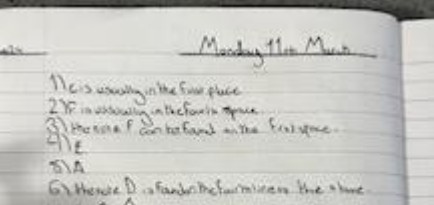 Monday 11th March
1) E is usually in the first place
2) F is usually in the fourth space
3) the note F can be found on the first space.
4) E
5) A
6) the note D is found on the fourth line on the